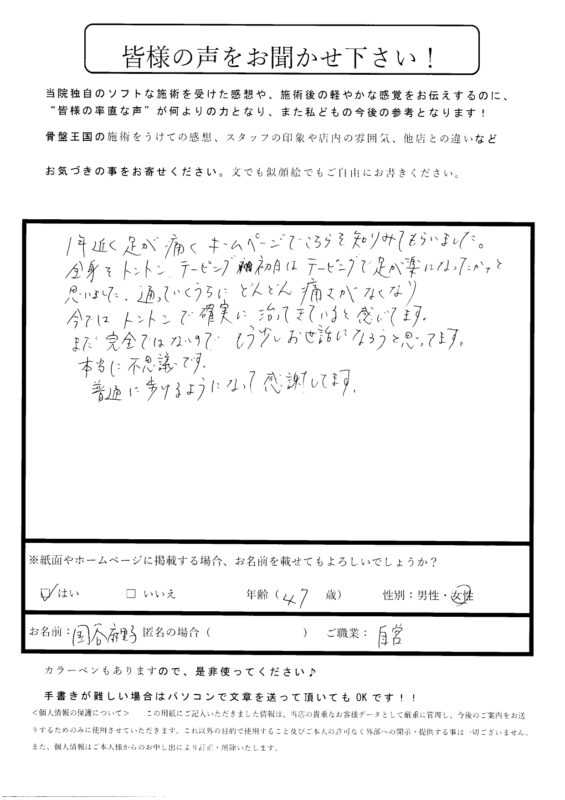 皆様の声をお聞かせ下さい！
当院独自のソフトな施術を受けた感想や、施術後の軽やかな感覚をお伝えするのに、
“皆様の率直な声”が何よりの力となり、また私どもの今後の参考となります！
骨盤王国の施術をうけての感想、スタッフの印象や店内の雰囲気、他店との違いなど
お気づきの事をお寄せください。文でも似顔絵でもご自由にお書きください。
1年近く足が痛くホームページでこちらを知りみてもらいました。
全身をトントン、テーピング 初月はテーピングで足が楽になったかなと
思いました、通っていくうちにどんどん痛さがなくなり
今ではトントンで確実に治ってきていると感じてます。
まだ完全ではないのでもう少しお世話になろうと思ってます。
本当に不思議です。
普通に歩けるようになって感謝してます。
※紙面やホームページに掲載する場合、お名前を載せてもよろしいでしょうか？
☑はい □ いいえ 年齢（47 歳） 性別：男性・女性
お名前： 匿名の場合（ ） ご職業：自営
カラーペンもありますので、是非使ってください♪
手書きが難しい場合はパソコンで文章を送って頂いてもOKです！！
＜個人情報の保護について＞ この用紙にご記入いただきました情報は、当店の貴重なお客様データとして厳重に管理し、今後のご案内をお送
りするためのみに使用させていただきます。これ以外の目的で使用すること及びご本人の許可なく外部への開示・提供する事は一切ございません。
また、個人情報はご本人様からのお申し出により訂正・削除いたします。